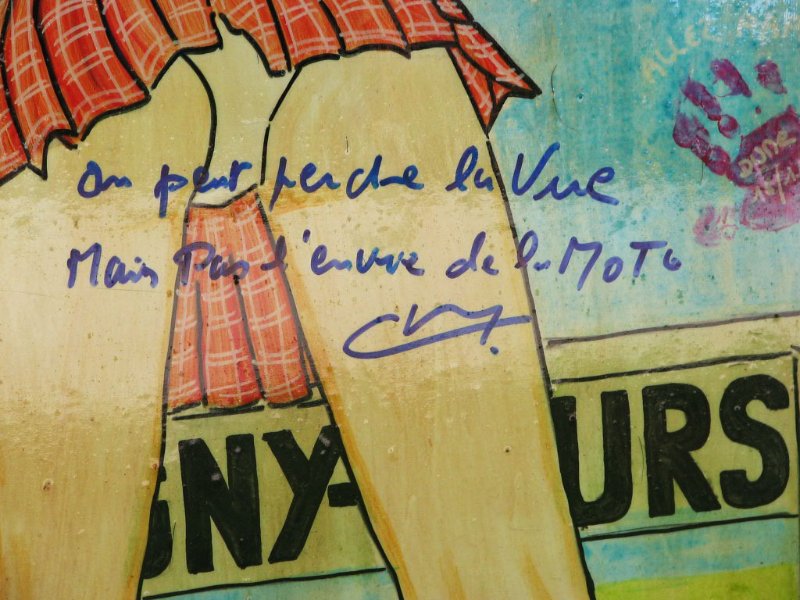 ALLEZ
DONE
On peut perdre la Vue
Mais Pas l'envie de la MOTO
GNY-
URS